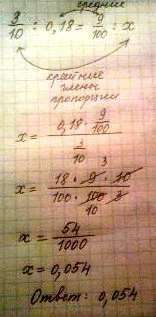 средние
3/10 : 0,18 = 9/100 : x
крайние
члены
пропорции
x = (0,18 · 9/100) / (3/10)
x = (18 · 9 3 · 10) / (100 · 100 10 · 3)
x = 54/1000
x = 0,054
Ответ: 0,054